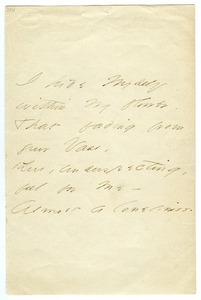 I hide Myself
within my flower,
That fading from
your Vase,
You, unsuspecting,
feel for Me -
Almost a loneliness.